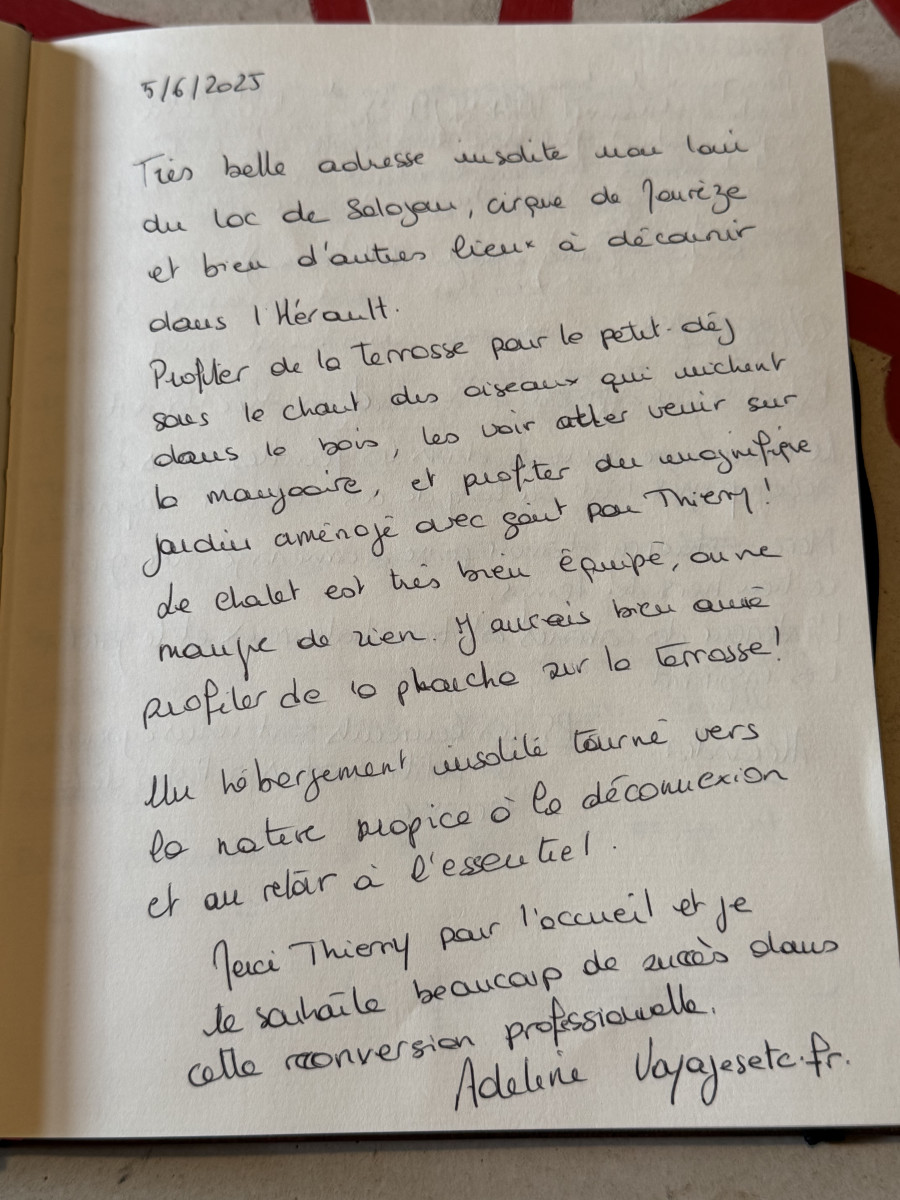 5/6/2025
Très belle adresse insolite non loin
du lac de Salagou, cirque de Mourèze
et bien d'autres lieux à découvrir
dans l'Hérault.
Profiter de la terrasse pour le petit-déj
sous le chant des oiseaux qui nichent
dans le bois, les voir aller venir sur
la mangeoire, et profiter du magnifique
jardin aménagé avec goût par Thierry !
Le chalet est très bien équipé, on ne
manque de rien. J'aurais bien aimé
profiter de la plancha sur la terrasse !
Un hébergement insolite tourné vers
la nature propice à la déconnexion
et au retour à l'essentiel.
Merci Thierry pour l'accueil et je
te souhaite beaucoup de succès dans
cette reconversion professionnelle.
Adeline Voyagesetc.fr.